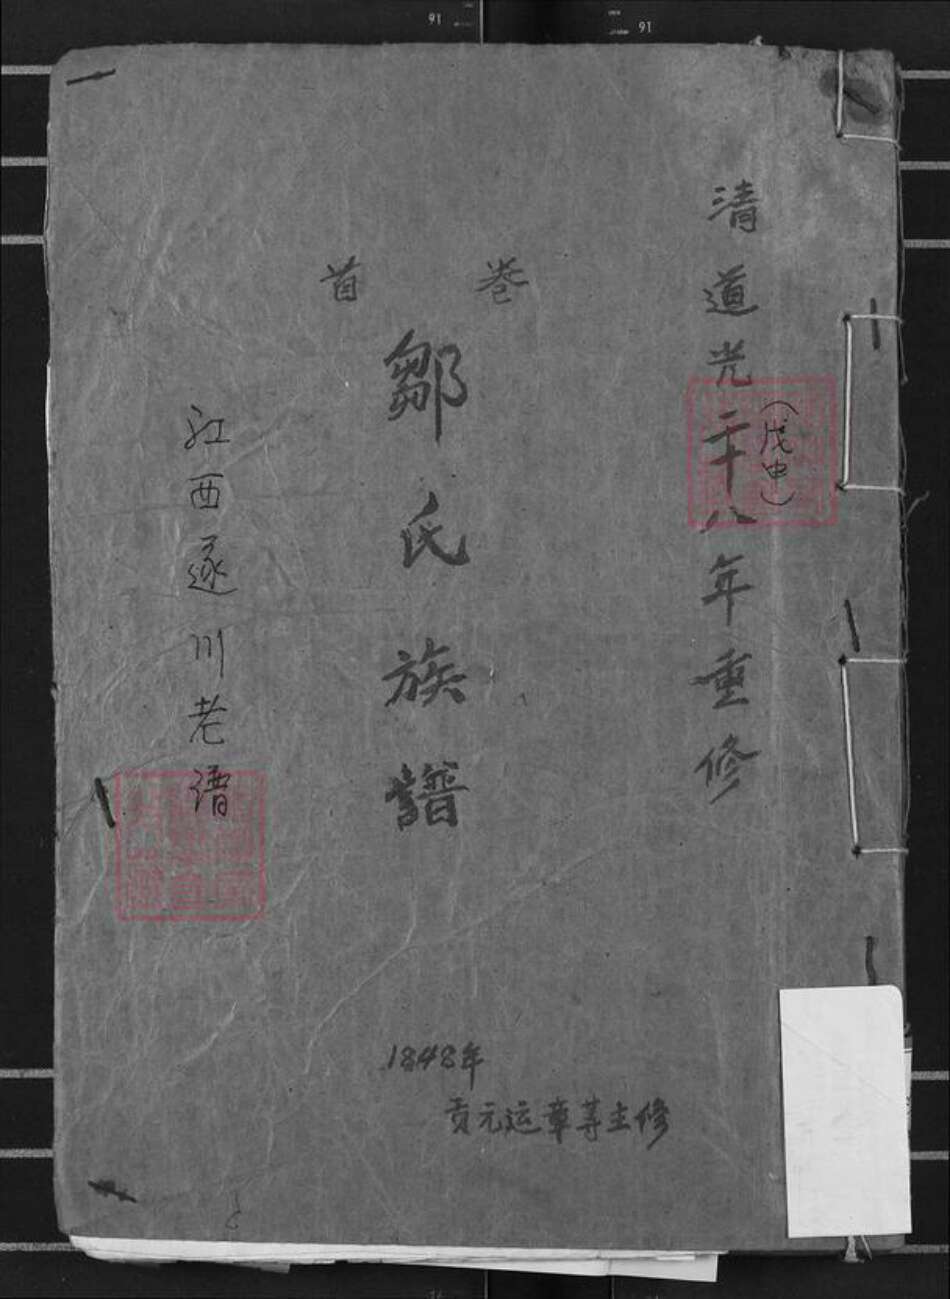 清道光二十八年重修
(戊申)
卷首
鄒氏族譜
江西遂川老谱
1848年
贡元运章等主修
91
91